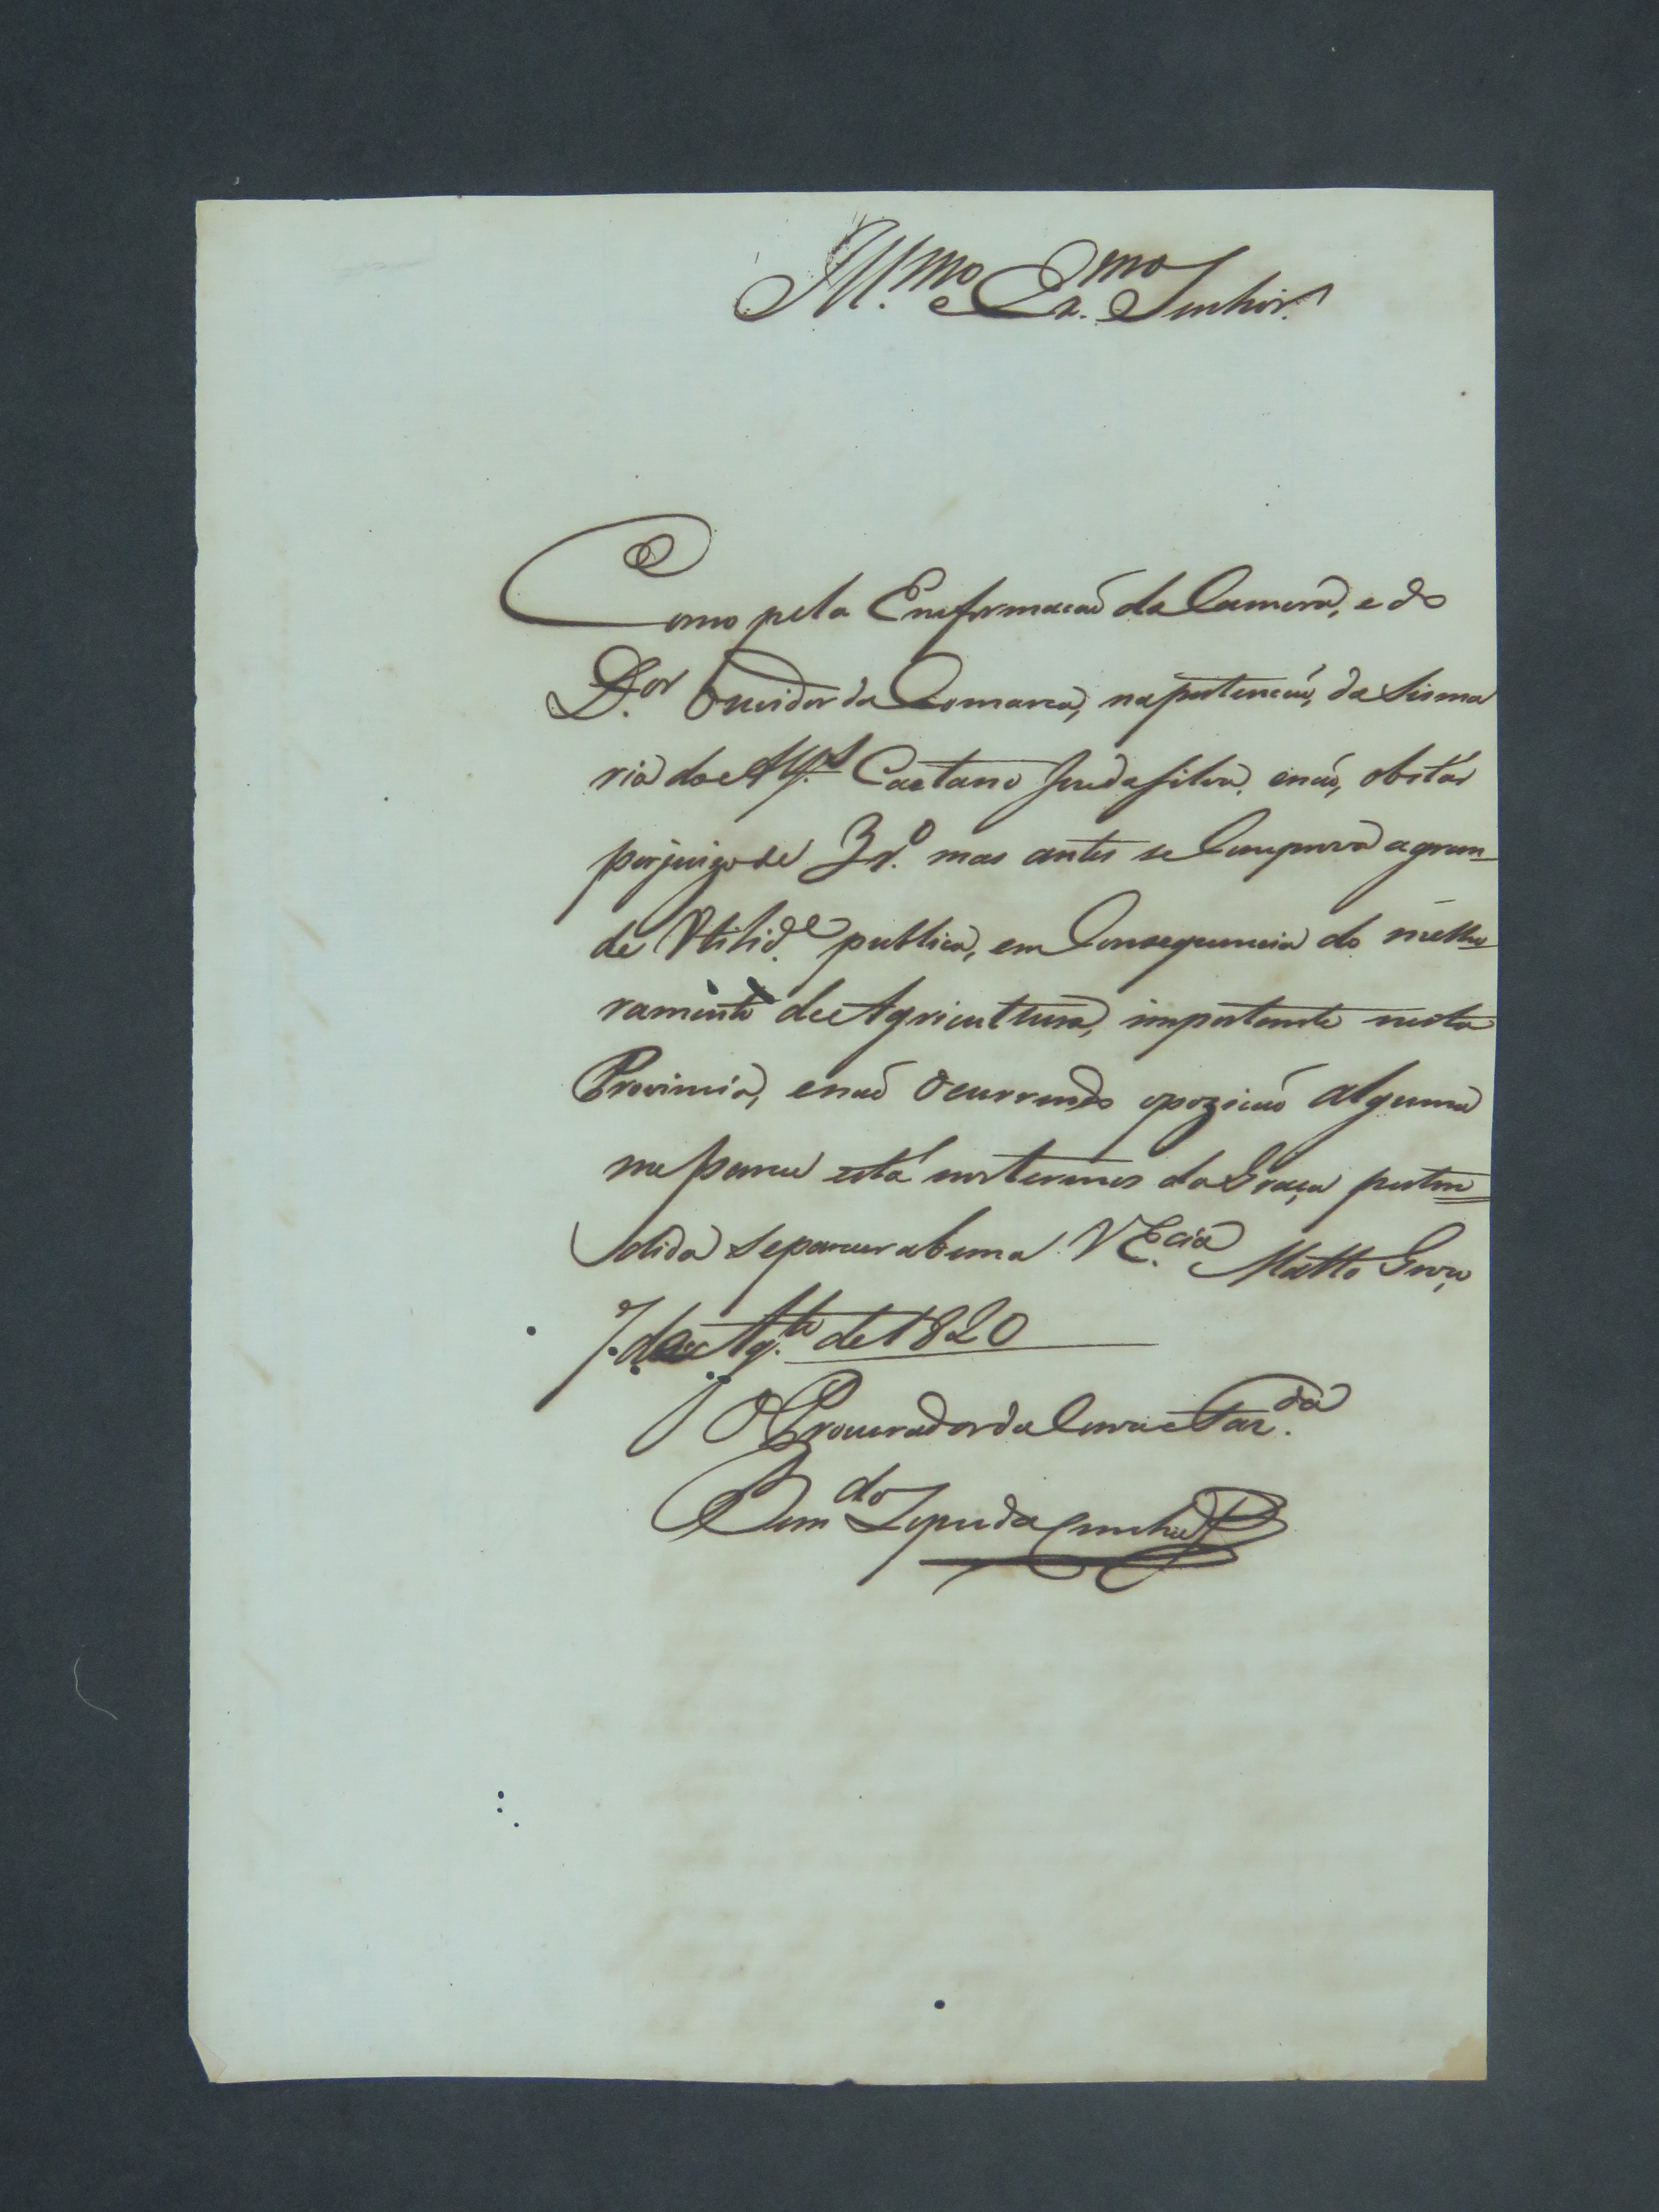 Ill.mo e Ex.mo Senhor.
Como pela Emformacaõ da Camera, e do
D.or Ouvidor da Comarca, na pertencaõ, da Sisma
ria do Alf.s Caetano Joze da Silva, e naõ, obstár
perjuizo de 3r.o mas antes se Comprova a gran-
de Utilid.e publica, em Consequencia do melho-
ramento da Agricultura, importante nesta
Provincia, e naõ Ocurrendo opoziçaõ alguma
me parece está nos termos da Graça perten=
dida se parecer a bem a V Ex.cia Matto Groço
7. de Ag.to de 1820
O Procurador da Coroa e Faz.da
Bern.do Lopes da Cunha